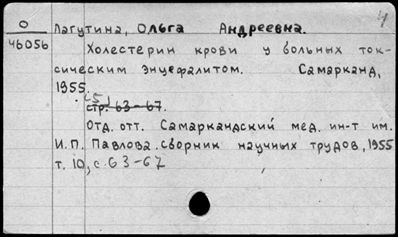 4
О
46056
Лагутина, Ольга Андреевна.
Холестерин крови у больных ток-
сическим энцефалитом. Самарканд,
1955.
[5]
стр. 63-67.
Отд. отт. Самаркандский мед. ин-т им.
И.П. Павлова. Сборник научных трудов, 1955
т. 10, с. 63-67